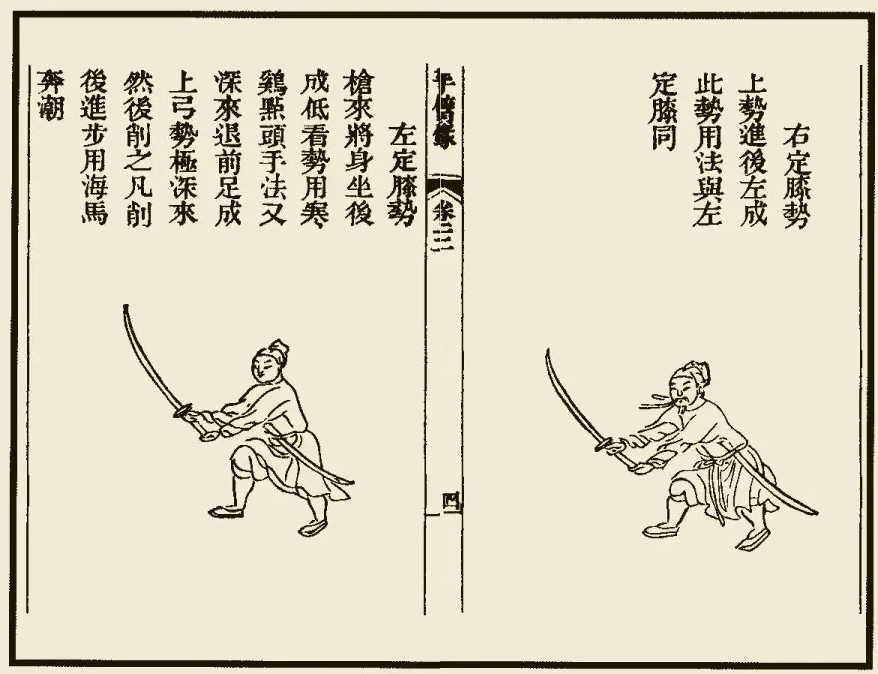 右定膝勢
上勢進後左成
此勢用法與左
定膝同
手臂錄
卷三
四
左定膝勢
槍來將身坐後
成低看勢用寒
鷄點頭手法又
深來退前足成
上弓勢極深來
然後削之凡削
後進步用海馬
奔潮